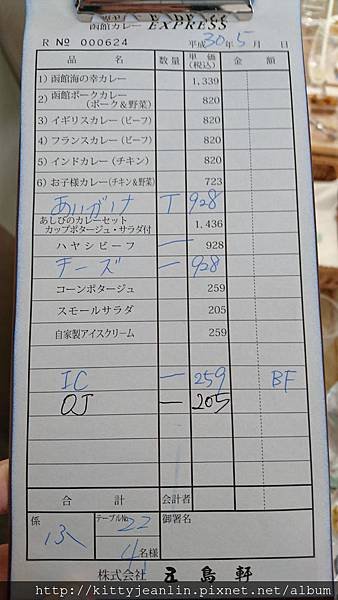 函館カレー EXPRESS
R № 000624 平成30年5月 日
品名 数量 単価(税込) 金額
1) 函館海の幸カレー 1,339
2) 函館ポークカレー(ポーク&野菜) 820
3) イギリスカレー(ビーフ) 820
4) フランスカレー(ビーフ) 820
5) インドカレー(チキン) 820
6) お子様カレー(チキン&野菜) 723
あいがけ T 928
あしびのカレーセット
カップポタージュ・サラダ付 1,436
ハヤシビーフ 一 928
チーズ 一 928
コーンポタージュ 259
スモールサラダ 205
自家製アイスクリーム 259
IC 一 259 BF
OJ 一 205
合計 会計者
係 テーブル№ 22 御署名
4名様
株式会社 五島軒
http://kittyjeanlin.pixnet.net/album